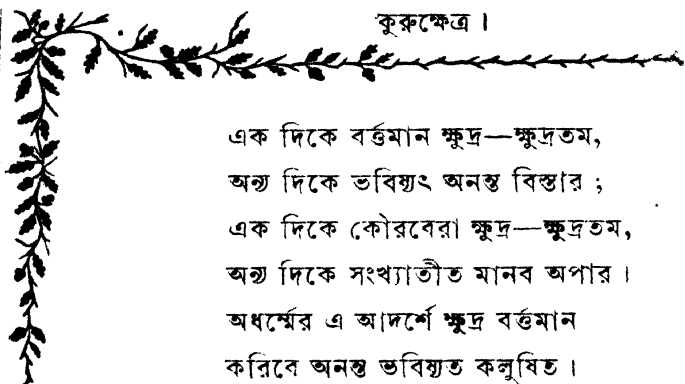 কুরুক্ষেত্র ।
এক দিকে বর্ত্তমান ক্ষুদ্র—ক্ষুদ্রতম,
অন্য দিকে ভবিষ্যৎ অনন্ত বিস্তার ;
এক দিকে কৌরবেরা ক্ষুদ্র—ক্ষুদ্রতম,
অন্য দিকে সংখ্যাতীত মানব অপার ।
অধর্ম্মের এ আদর্শে ক্ষুদ্র বর্ত্তমান
করিবে অনন্ত ভবিষ্যত কলুষিত ।